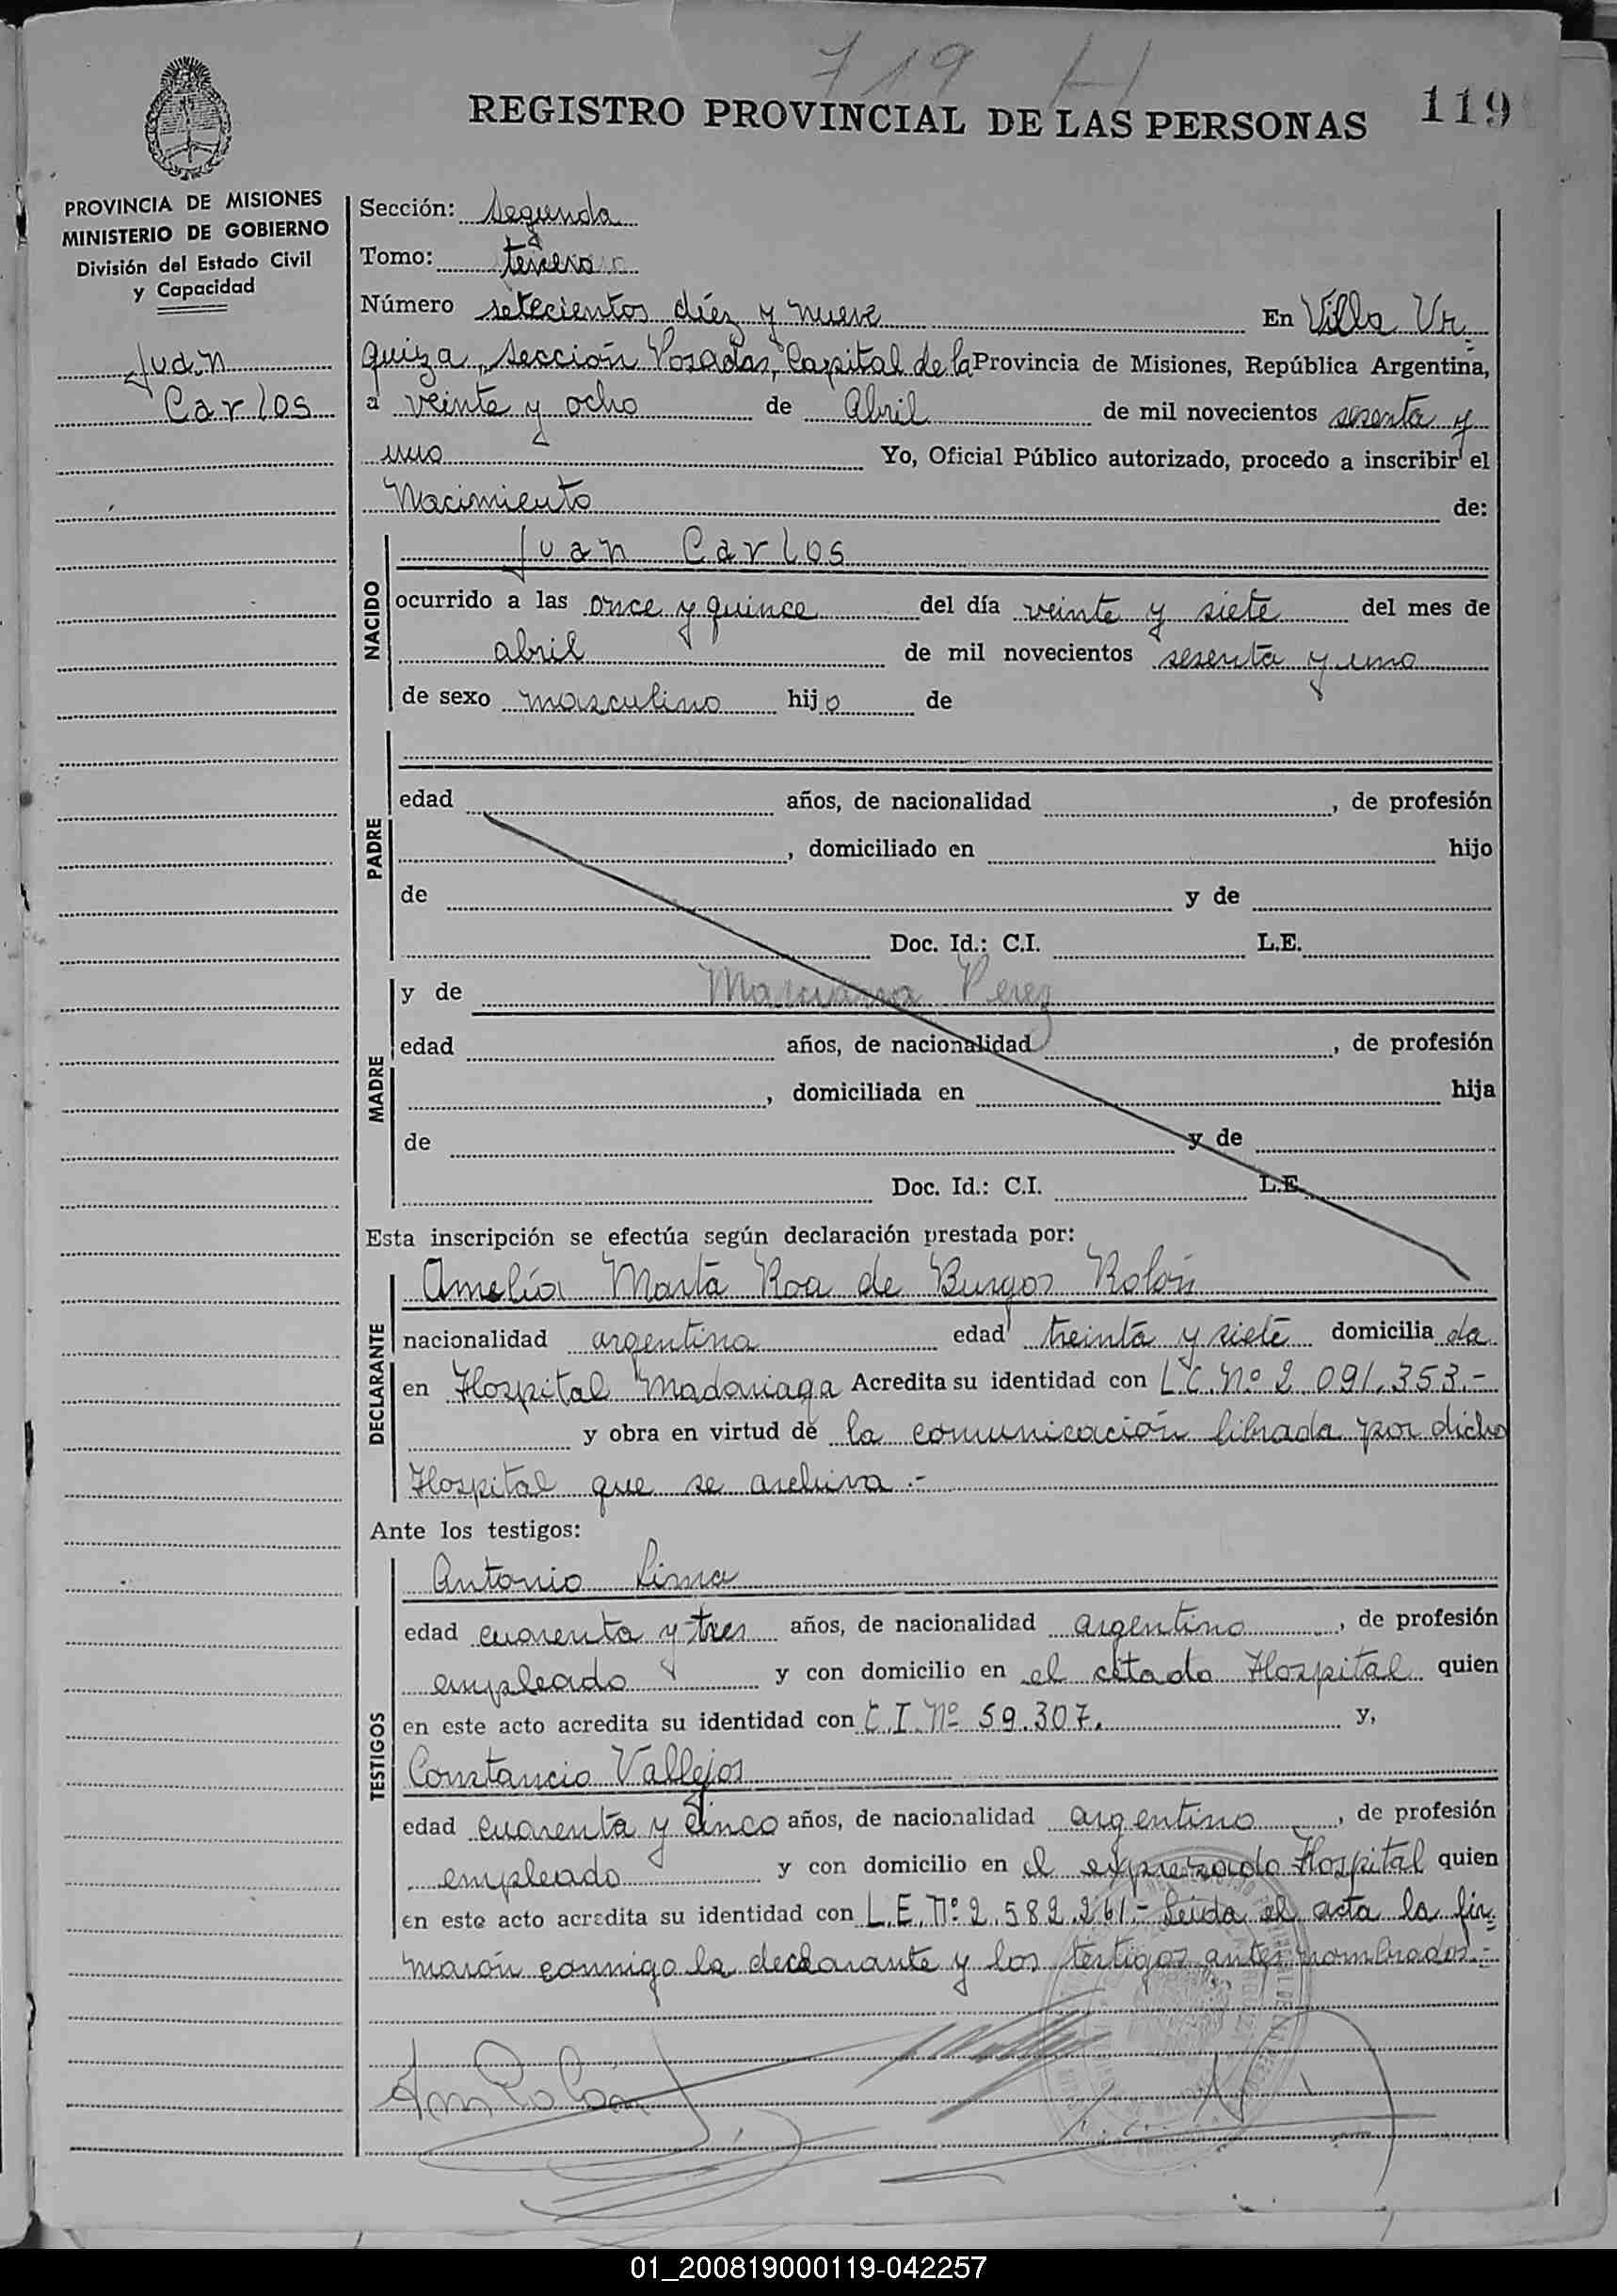 719 H
REGISTRO PROVINCIAL DE LAS PERSONAS 119
PROVINCIA DE MISIONES
MINISTERIO DE GOBIERNO
División del Estado Civil
y Capacidad
Juan
Carlos
Sección: Segunda
Tomo: tercero
Número setecientos diéz y nueve En Villa Ur
quiza, sección Posadas, Capital de la Provincia de Misiones, República Argentina,
a veinte y ocho de Abril de mil novecientos sesenta y
uno Yo, Oficial Público autorizado, procedo a inscribir el
Nacimiento de:
NACIDO
Juan Carlos
ocurrido a las once y quince del día veinte y siete del mes de
abril de mil novecientos sesenta y uno
de sexo masculino hijo de
PADRE
edad años, de nacionalidad , de profesión
, domiciliado en hijo
de y de
Doc. Id.: C.I. L.E.
MADRE
y de Perez
edad años, de nacionalidad , de profesión
, domiciliada en hija
de y de
Doc. Id.: C.I. L.E.
Esta inscripción se efectúa según declaración prestada por:
DECLARANTE
Amelia Marta Roa de Burgos Rolón
nacionalidad argentina edad treinta y siete domiciliada
en Hospital Madariaga Acredita su identidad con L.C. Nº 2.091.353.-
y obra en virtud de la comunicación librada por dicho
Hospital que se archiva.-
Ante los testigos:
TESTIGOS
Antonio Lima
edad cuarenta y tres años, de nacionalidad argentino, de profesión
empleado y con domicilio en el citado Hospital quien
en este acto acredita su identidad con C.I. Nº 59.307. y,
Constancio Vallejos
edad cuarenta y cinco años, de nacionalidad argentino, de profesión
empleado y con domicilio en el expresado Hospital quien
en este acto acredita su identidad con L.E. Nº 2.582.261.- Leída el acta la fir=
marón conmigo la declarante y los testigos antes nombrados.-
01_200819000119-042257